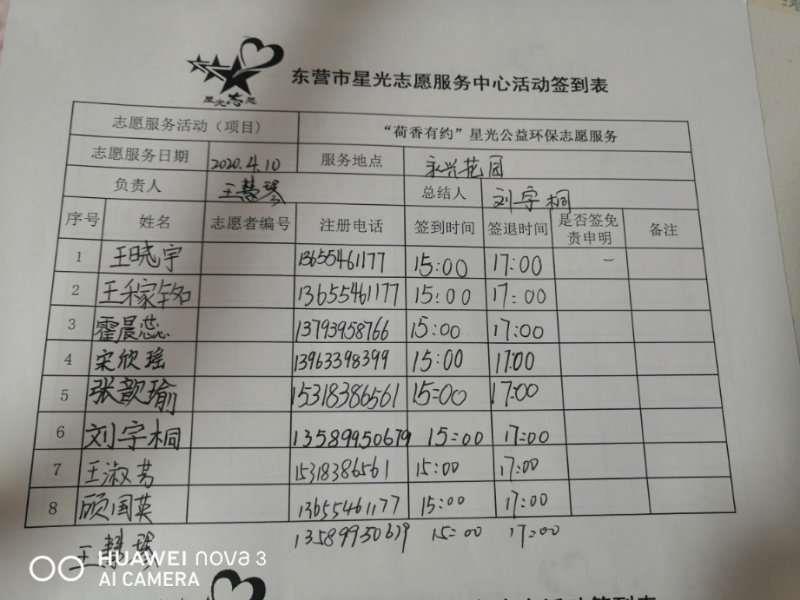 星光志愿
东营市星光志愿服务中心活动签到表
志愿服务活动（项目） “荷香有约”星光公益环保志愿服务
志愿服务日期 2020.4.10 服务地点 永兴花园
负责人 王慧琴 总结人 刘宇桐
序号 姓名 志愿者编号 注册电话 签到时间 签退时间 是否签免责申明 备注
1 王晓宇 13655461177 15:00 17:00 —
2 王稼铭 13655461177 15:00 17:00
3 霍晨蕊 13793958766 15:00 17:00
4 宋欣瑶 13963398399 15:00 17:00
5 张歆瑜 15318386561 15:00 17:00
6 刘宇桐 13589950679 15:00 17:00
7 王淑芳 15318386561 15:00 17:00
8 顾国英 13655461177 15:00 17:00
王慧琴 13589950679 15:00 17:00
HUAWEI nova 3
AI CAMERA
活动签到表